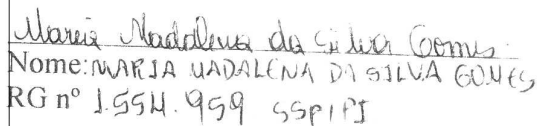 Maria Madalena da Silva Gomes
Nome: MARIA MADALENA DA SILVA GOMES
RG nº 1.554.959 SSP/PI